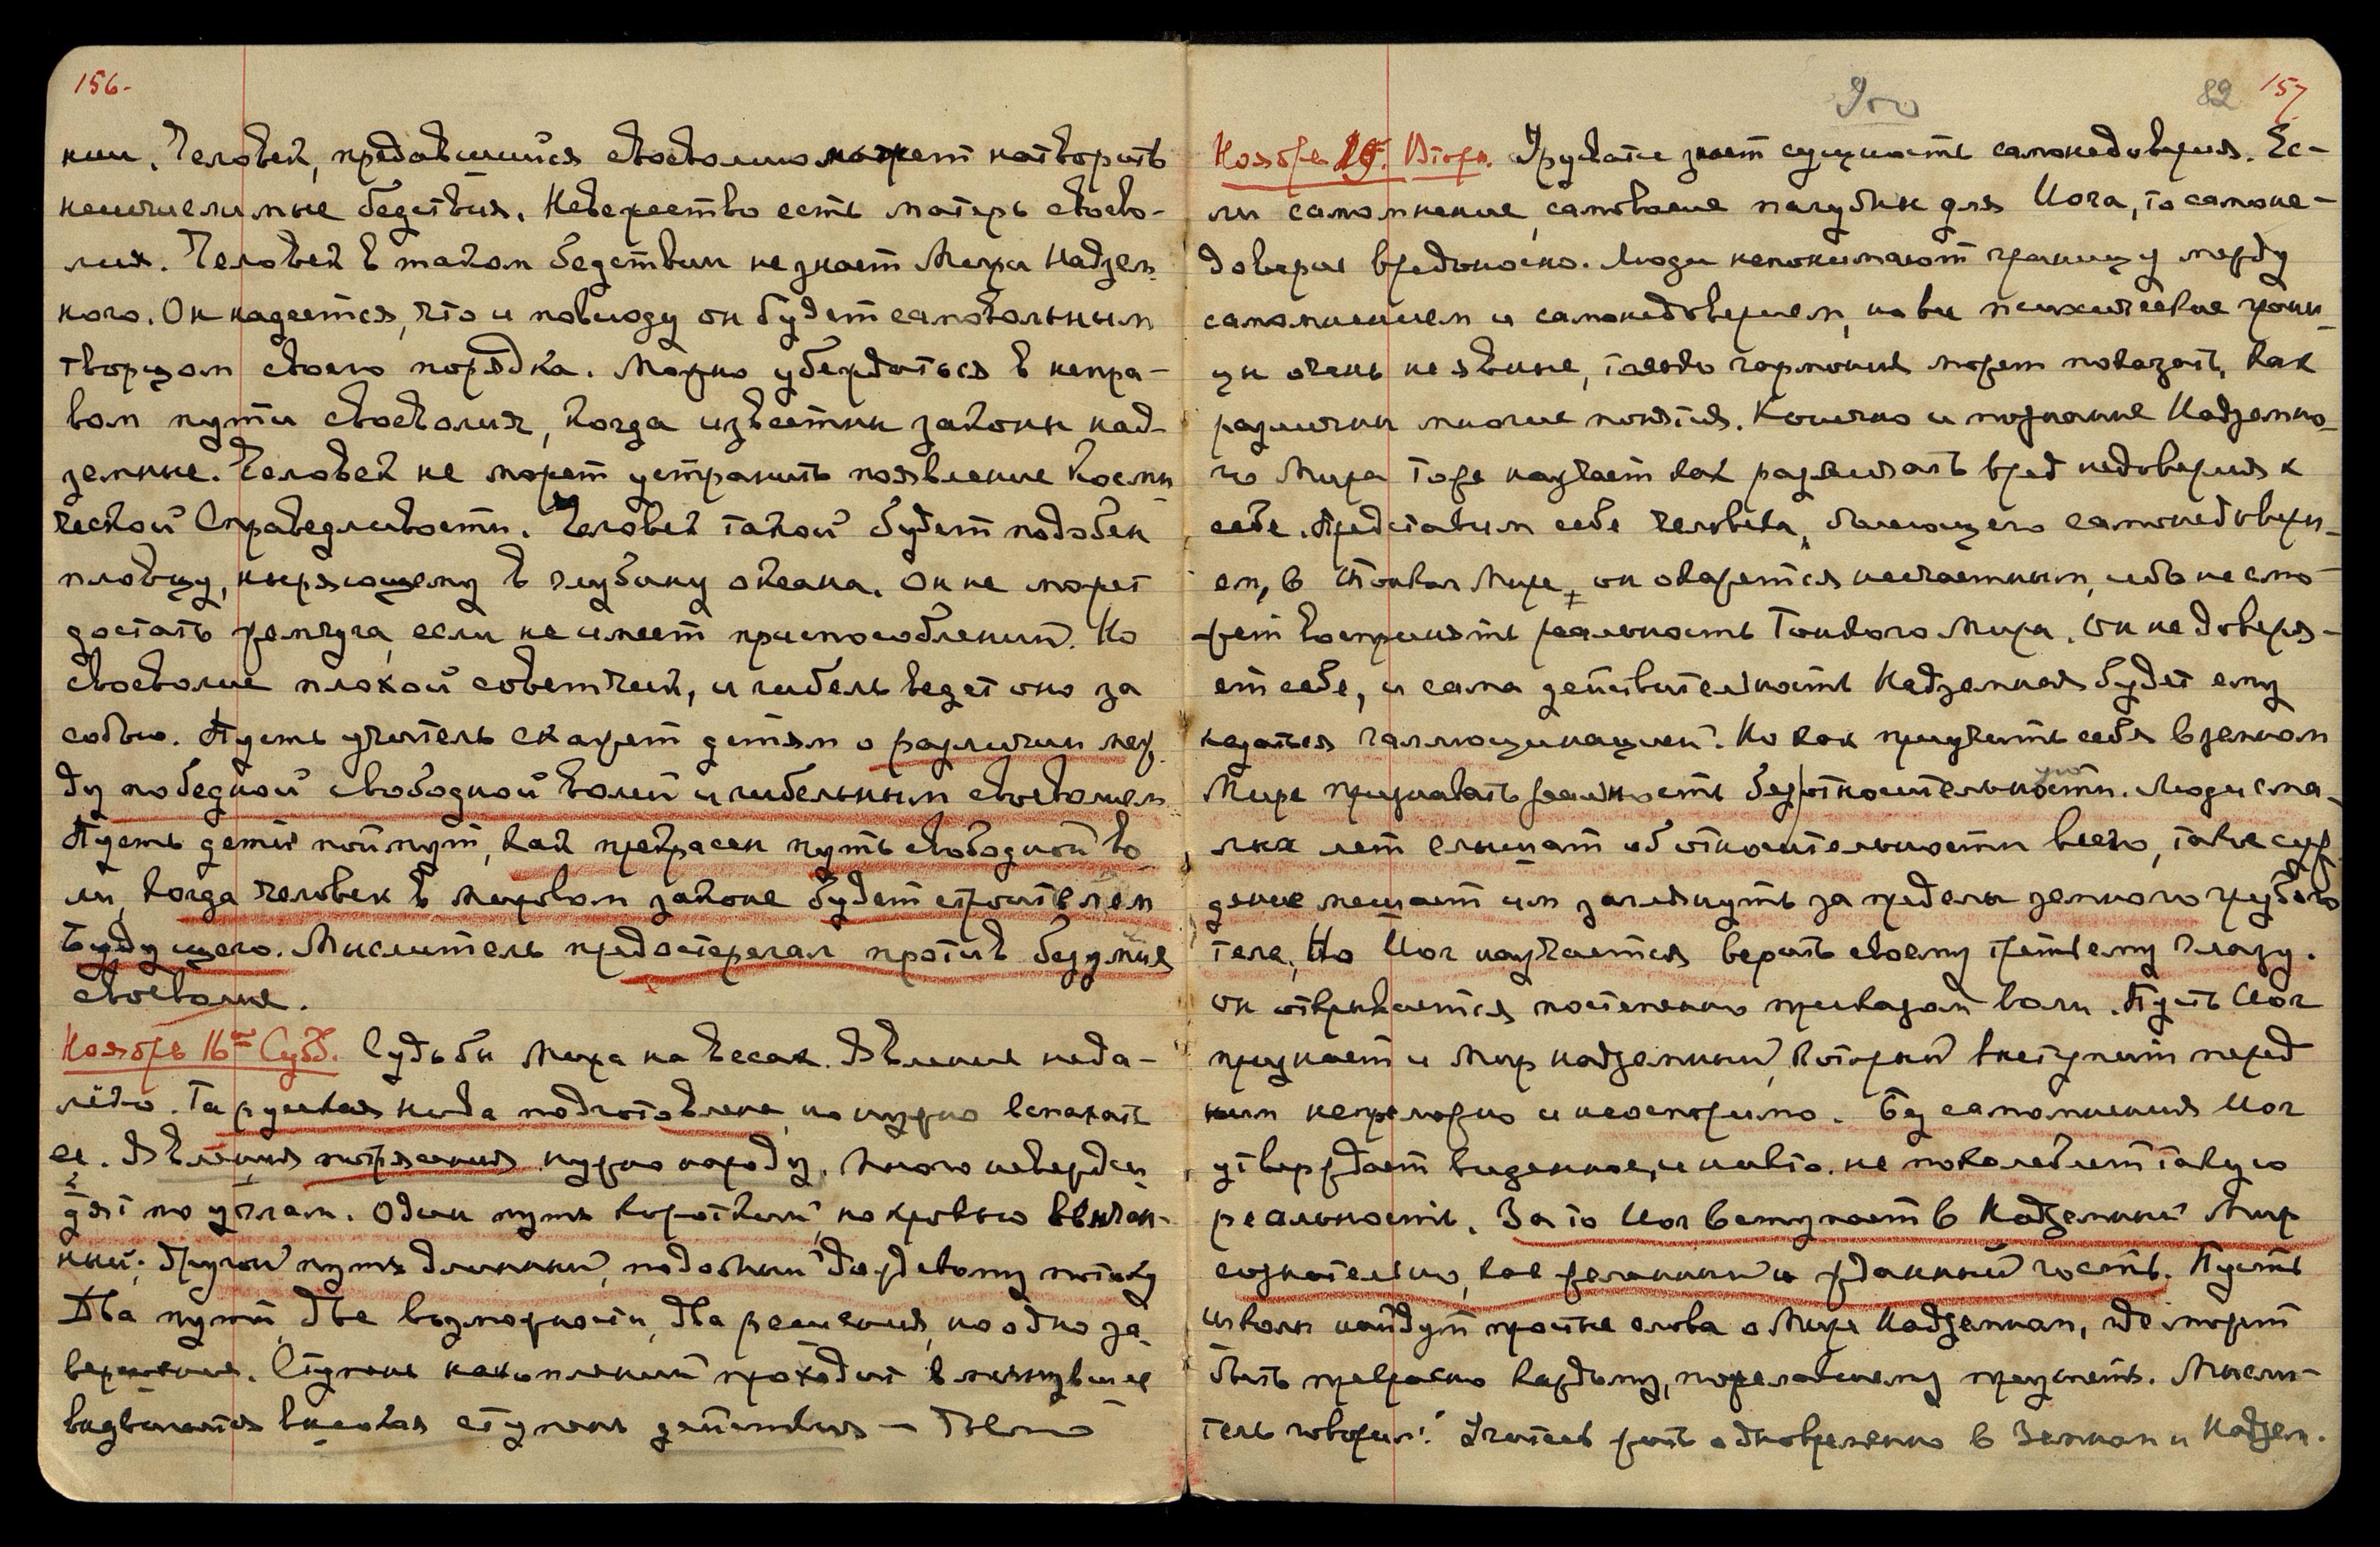 156.
нии. Человек, предавшийся своеволию может натворить
неисчислимые бедствия. Невежество есть матерь своево-
лия. Человек в таком бедствии не знает Мира Надзем-
ного. Он надеется, что и повсюду он будет самовольным
творцом своего порядка. Можно убедиться в непра-
вом пути своеволия, когда известны законы над-
земные. Человек не может устранить появление Косми
ческой Справедливости. Человек такой будет подобен
пловцу, ныряющему в глубину океана. Он не может
достать жемчуга, если не имеет приспособлений. Но
своеволие плохой советчик, и гибель ведет оно за
собою. Пусть учитель скажет детям о различии меж-
ду победной свободной волей и гибельным своеволием
Пусть дети поймут, как прекрасен путь свободной во
ли, когда человек в мировом законе будет строителем
Будущего. Мыслитель предостерегал против безумия
своеволия.
Ноябрь 16ое Субб. Судьбы Мира на весах. Явление неда-
лёко. Та русская нива подготовлена, но нужно вспахать
ее. Явления потрясения нужно народу. Много
дят по углам. Один путь короткий, но кровью
ный; другой путь длинный, подобный дождевому потоку
Два пути, две возможности, два решения, но одно за-
вершение. Ступень накоплений проходит в минувшее
выдвигается высокая ступень действия —
Это
82 157
Ноябрь 19. Вторн. Урусвати знает сущность самонедоверия. Ес-
ли самомнение, самоволие пагубны для Йога, то самоне-
доверие вредоносно. Люди не понимают границу между
самомнением и самонедоверием, но все психические грани
цы очень не явные, только гармония может показать, как
различны многие понятия. Конечно и познание Надземно-
го Мира тоже научает как различать вред недоверия к
себе. Представим себе человека, болеющего самонедовери-
ем, в Тонком Мире, он окажется несчастным, ибо не смо-
жет воспринять реальность Тонкого Мира. Он не доверя-
ет себе, и сама действительность Надземная будет ему
казаться галлюцинацией. Но как приучить себя в земном
Мире признавать реальность без относительности. Люди с ма-
лых лет слышат об относительности всего, такое суж
дение мешает им заглянуть за пределы земного грубого
тела. Но Йог научается верить своему третьему глазу.
Он открывается постепенно приказом воли. Пусть Йог
признает и Мир надземный, который выступит перед
ним непреложно и неоспоримо. Без самомнения Йог
утверждает виденное, и никто не поколеблет такую
реальность. Зато Йог вступает в Надземный Мир
сознательно, как желанный и жданный гость. Пусть
школы найдут простые слова о Мире Надземном, где может
быть прекрасно каждому, пожелавшему преуспеть. Мысли-
тель говорил: Учитесь жить одновременно в Земном и Надзем.